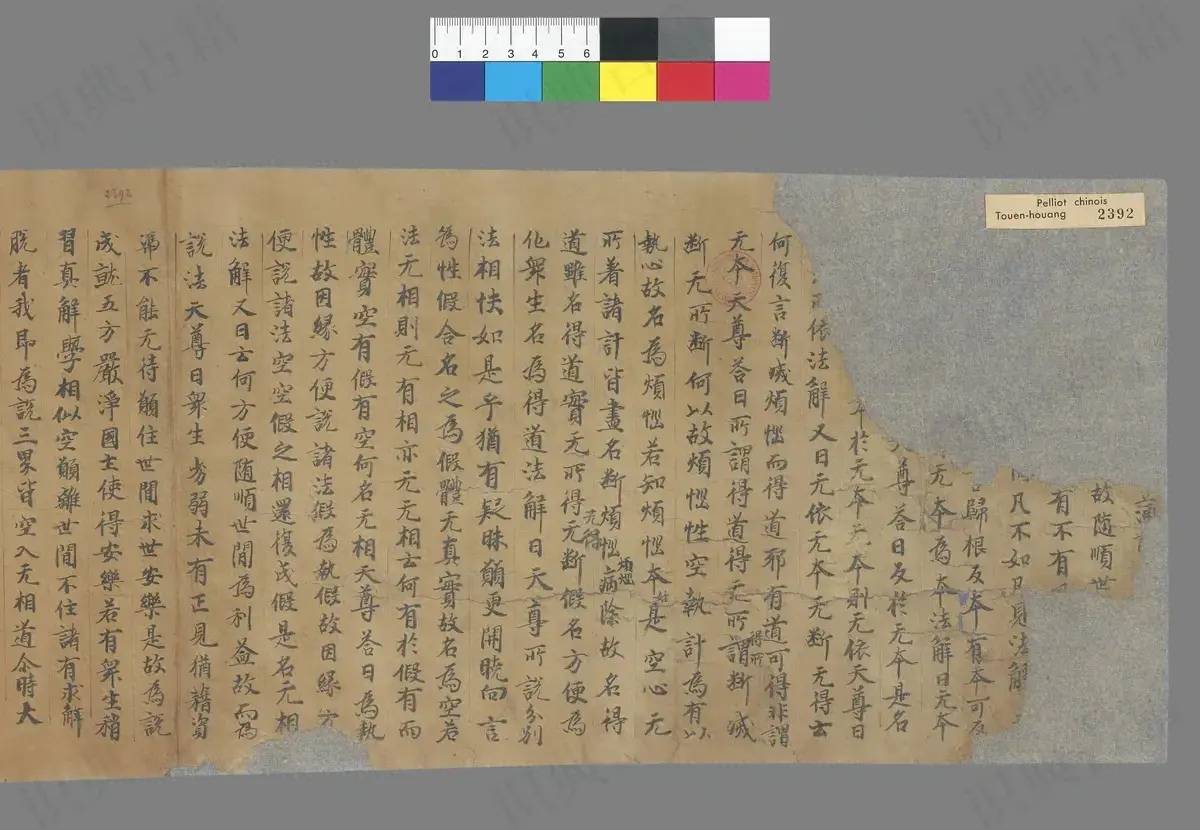 Pelliot chinois
Touen-houang 2392
0 1 2 3 4 5 6
故随順世
有不有
凡不如凡見法解
歸根反本有本可反
无本為本法解曰无本
尊荅曰反於无本是名
本於元本元本則无依天尊曰
依法解又曰无依无本无断无得云
何復言断滅煩惱而得道耶有道可得非謂
无本天尊荅曰所謂得道得无所謂断滅
得所
断无所断何以故煩惱性空執計為有以
執心故名為煩惱若知煩惱本是空心无
性
所著諸計皆盡名断煩惱病除故名得
煩惱
道雖名得道實无所得无断假名方便為
无得
化衆生名為得道法解曰天尊所說分别
法相快如是乎猶有疑昧願更開曉向言
為性假合名之為假體无真實故名為空若
法无相則无有相亦无无相云何有於假有而
體實空有假有空何名无相天尊荅曰為執
性故因緣方便說諸法假為執假故因緣方
便說諸法空空假之相還復成假是名无相
法解又曰云何方便随順世間為利益故而為
說法天尊曰衆生劣弱未有正見猶藉資
福不能无待願住世間求世安樂是故為說
成就五方嚴淨國土使得安樂若有衆生稍
習真解學相似空願離世間不住諸有求解
脫者我即為說三界皆空入无相道尒時大
2392